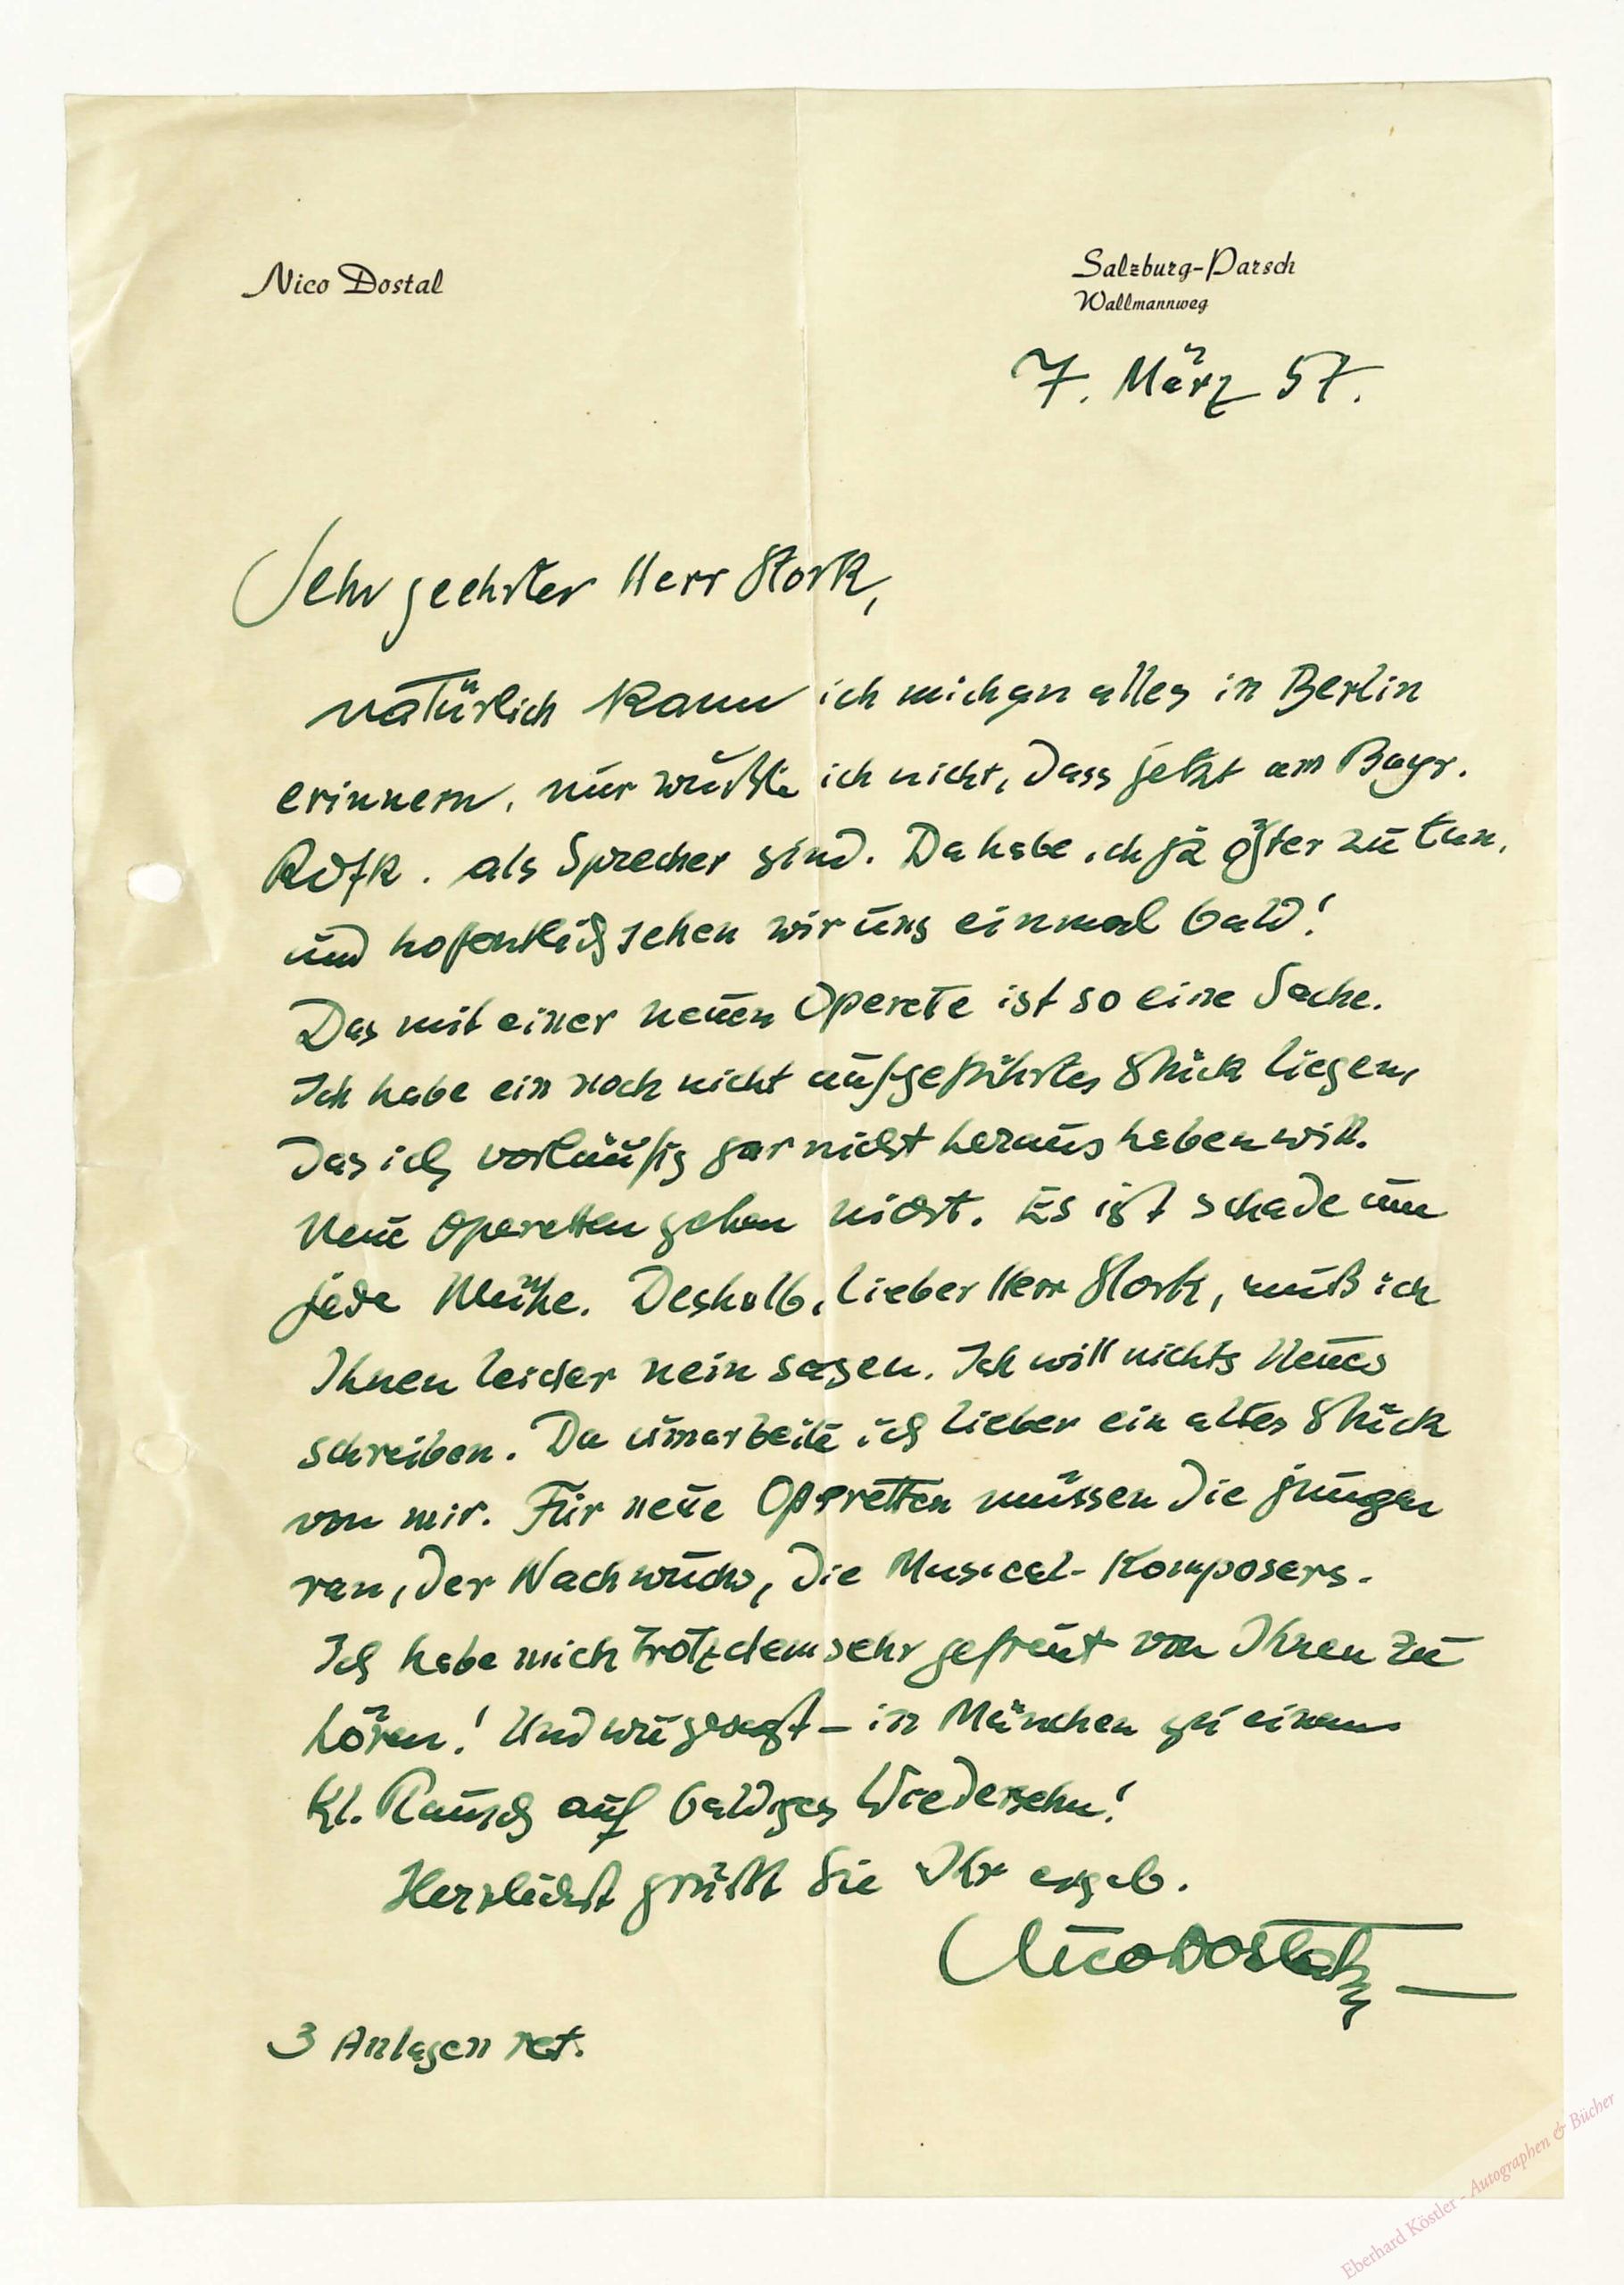 Nico Dostal
Salzburg-Parsch
Wallmannweg
7. März 57.
Sehr geehrter Herr Stork,
natürlich kann ich mich an alles in Berlin
erinnern, nur wußte ich nicht, dass jetzt am Bayr.
Rdfk. als Sprecher sind. Da habe ich ja öfter zu tun,
und hofentlich sehen wir uns einmal bald!
Das mit einer neuen Operete ist so eine Sache.
Ich habe ein noch nicht aufgeführtes Stück liegen,
das ich vorläufig gar nicht heraus haben will.
Neue Operetten gehen nicht. Es ist schade um
jede Mühe. Deshalb, lieber Herr Stork, muß ich
Ihnen leider nein sagen. Ich will nichts Neues
schreiben. Da umarbeite ich lieber ein altes Stück
von mir. Für neue Operetten müssen die jungen
ran, der Nachwuchs, die Musical-Komposers.
Ich habe mich trotzdem sehr gefreut von Ihnen zu
hören! Und wie gesagt – in München bei einem
kl. Rausch auf baldiges Wiedersehn!
Herzlichst grüßt Sie Ihr ergeb.
Nico Dostal
3 Anlagen ret.
Eberhard Köstler - Autographen & Bücher